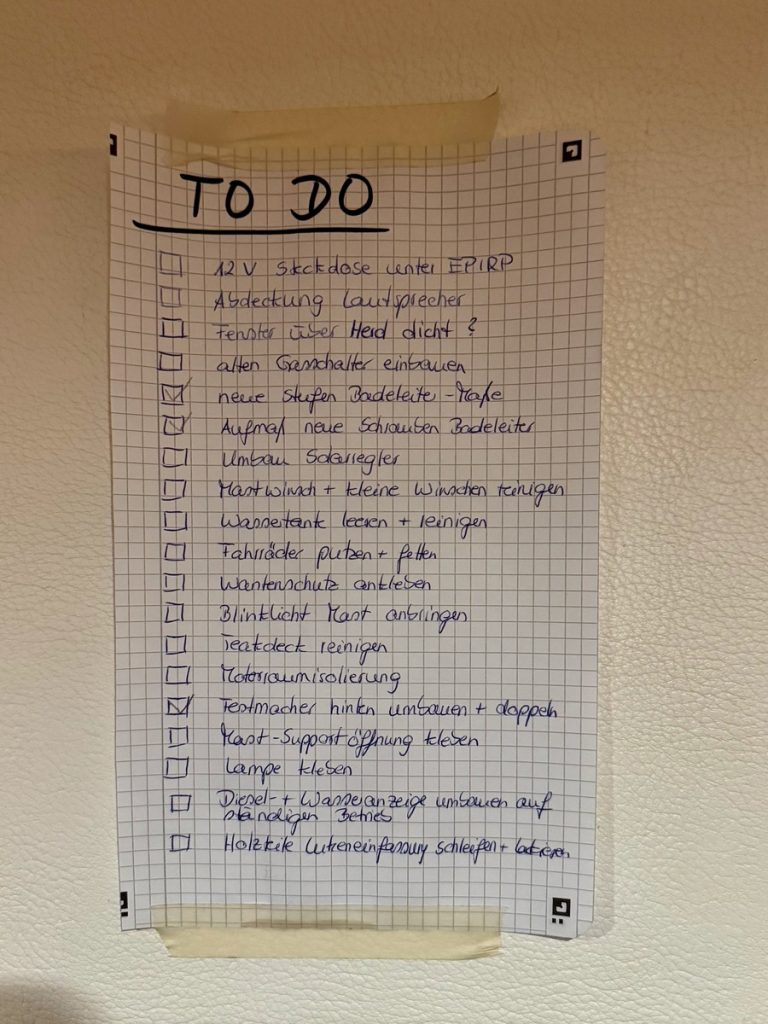 TO DO
12 V Steckdose unter EPIRP
Abdeckung Lautsprecher
Fenster über Herd dicht ?
alten Gasschalter einbauen
neue Stufen Badeleiter - Maße
Aufmaß neue Schrauben Badeleiter
Umbau Solarregler
Mastwinsch + kleine Winschen reinigen
Wassertank leeren + reinigen
Fahrräder putzen + fetten
Wantenschutz ankleben
Blinklicht Mast anbringen
Teakdeck reinigen
Motorraumisolierung
Festmacher hinten umbauen + doppeln
Mast-Supportöffnung kleben
Lampe kleben
Diesel- + Wasseranzeige umbauen auf
ständigen Betrieb
Holzkeile Lukeneinfassung schleifen + lackieren